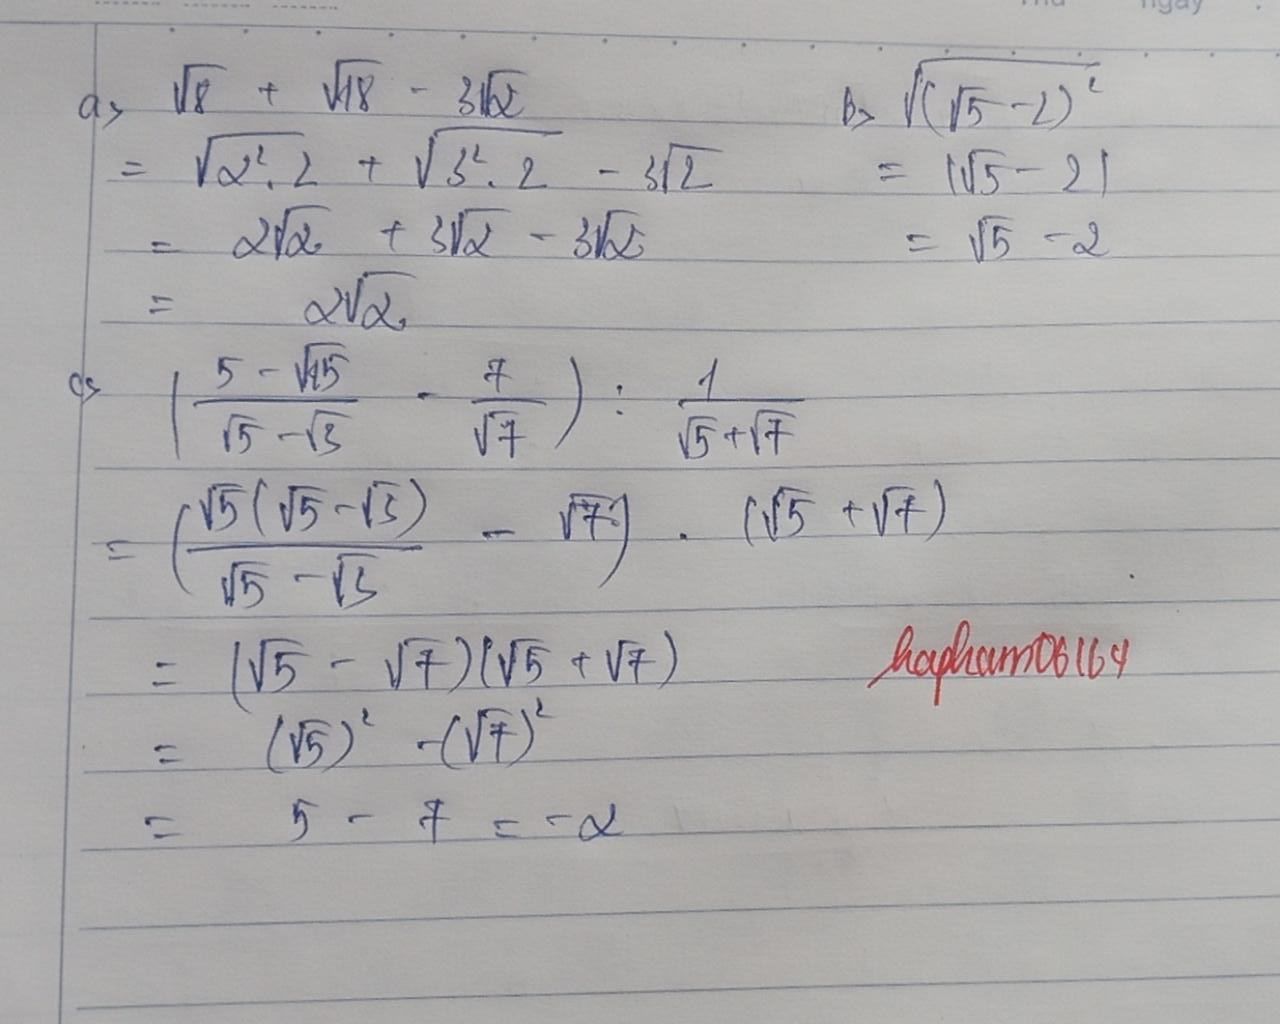 Thứ ngày
a> √8 + √18 - 3√2
= √(2².2) + √(3².2) - 3√2
= 2√2 + 3√2 - 3√2
= 2√2
b> √((√5 - 2)²)
= |√5 - 2|
= √5 - 2
c> ((5 - √15)/(√5 - √3) - 7/√7) : 1/(√5 + √7)
= ((√5(√5 - √3))/(√5 - √3) - √7) . (√5 + √7)
= (√5 - √7)(√5 + √7)
= (√5)² - (√7)²
= 5 - 7 = -2
hapham06164